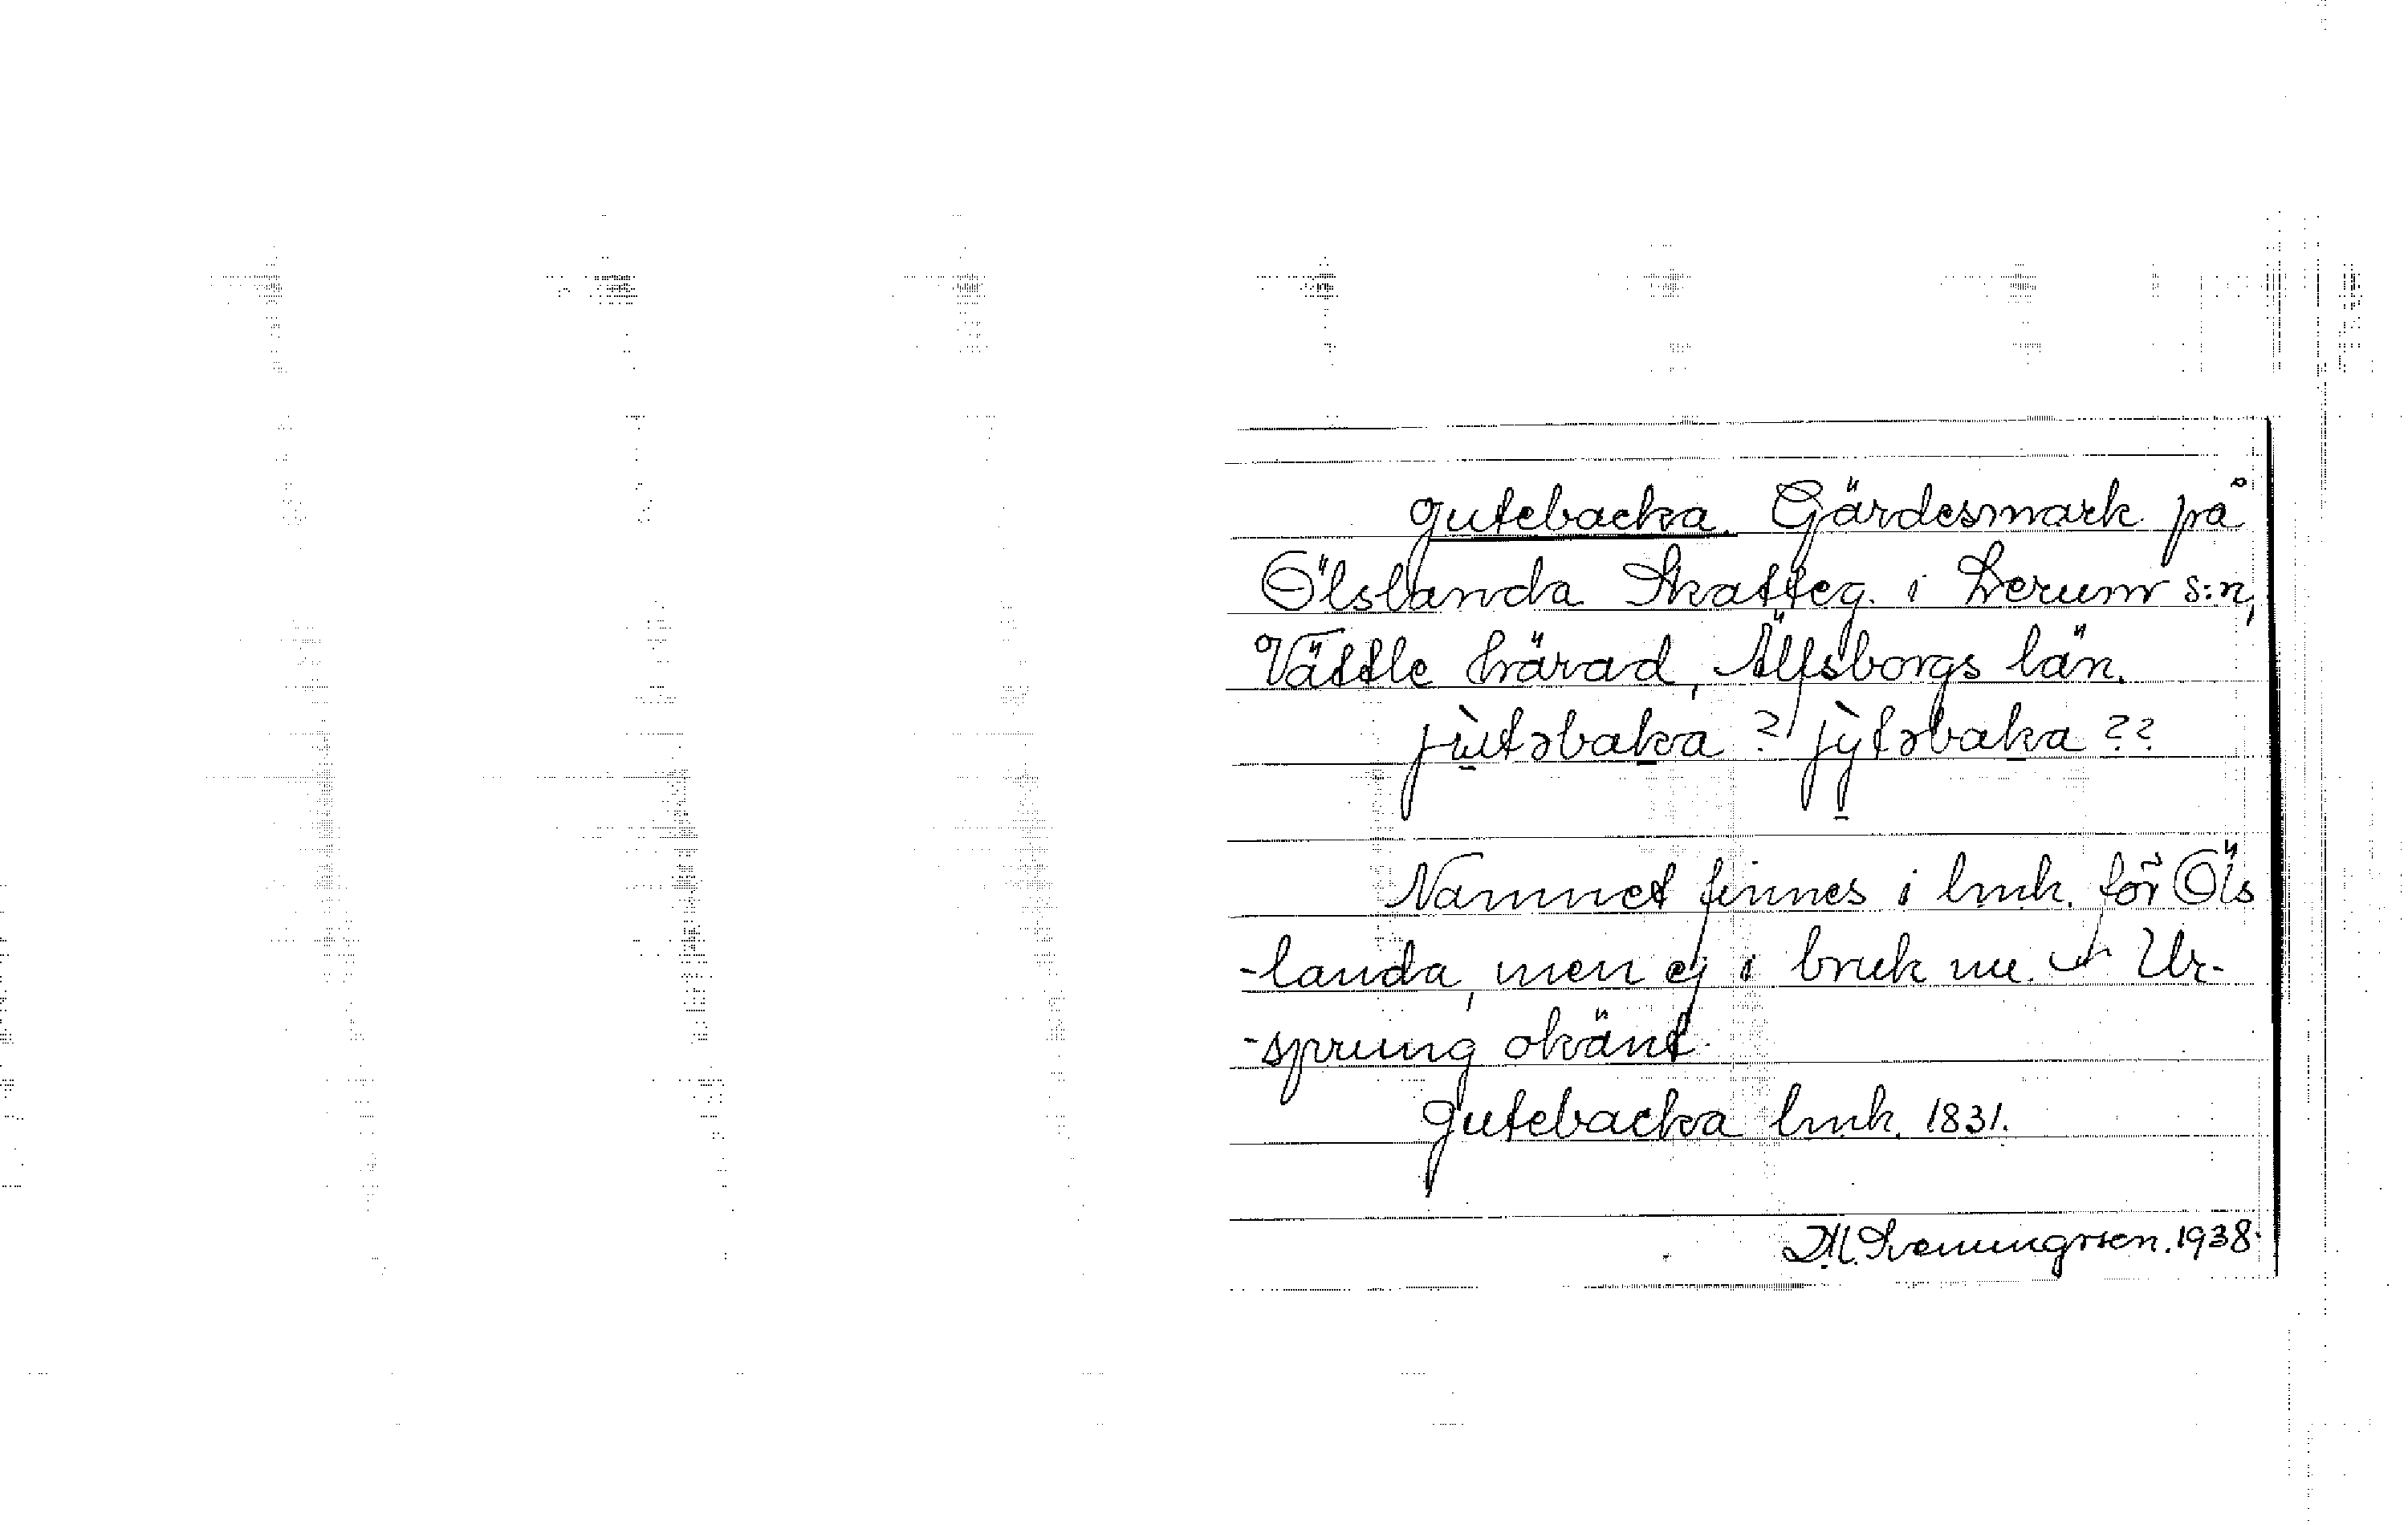 gutebacka. Gärdesmark på
Ölslanda Skatteg. i Lerum s:n,
Vättle härad, Älfsborgs län.
jùtəbaka ? jỳtəbaka ??
Namnet finnes i lmk. för Öls
-landa, men ej i bruk nu. Ur-
-sprung okänt.
gutebacka lmk. 1831.
1938.